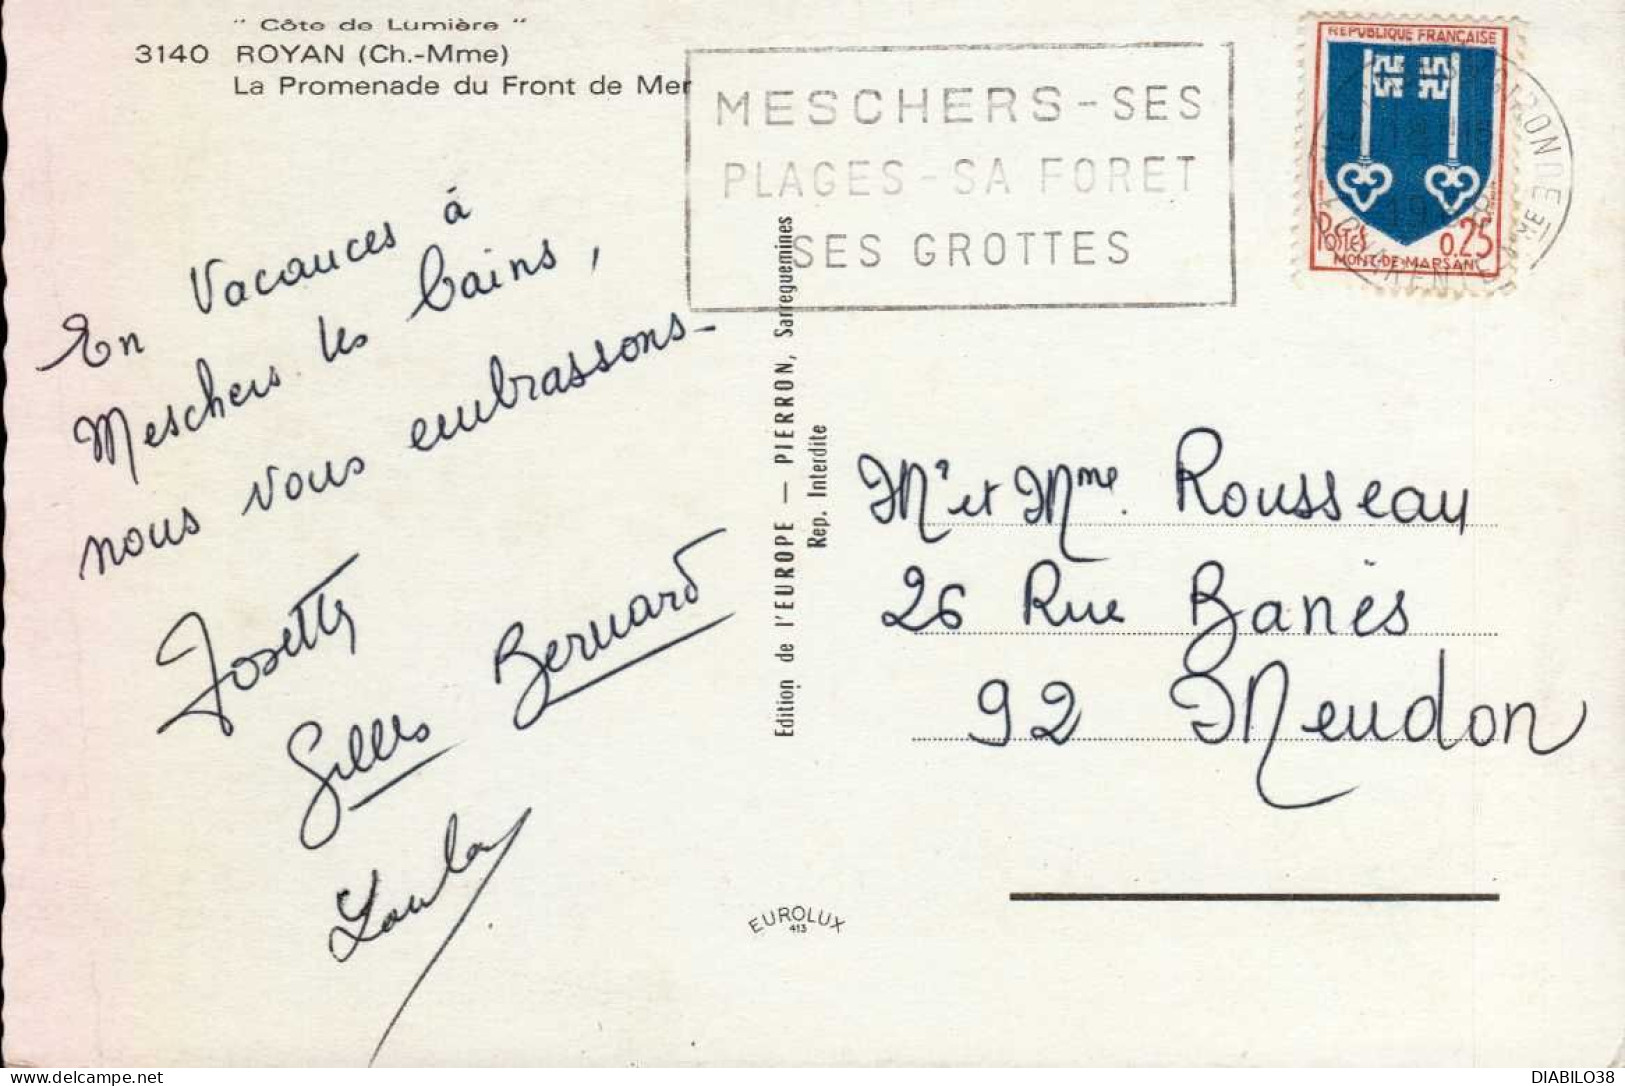 " Côte de Lumière "
3140 ROYAN (Ch.-Mme)
La Promenade du Front de Mer
MESCHERS - SES
PLAGES - SA FORET
SES GROTTES
REPUBLIQUE FRANÇAISE
POSTES
0,25
MONT-DE-MARSAN
GIRONDE
En Vacances à
Meschers les bains,
nous vous embrassons -
Josette
Bernard
Gilles
Edition de l'EUROPE — PIERRON, Sarreguemines
Rep. Interdite
Mr et Mme. Rousseau
26 Rue Banès
92 Meudon
EUROLUX
413
DIABILO38